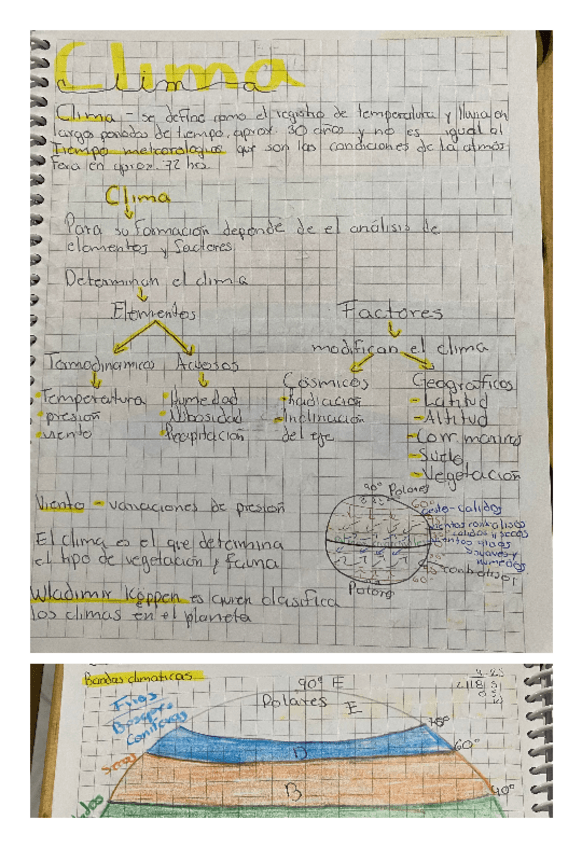 Clima
Clima - se define como el registro de temperatura y lluvia en
largos periodos de tiempo, aprox. 30 años y no es igual al
Tiempo metreorologico que son las condiciones de la atmós
fera en aprox. 72 hrs.
Clima
Para su formación depende de el análisis de
elementos y factores
Determinan el clima
Elementos
Factores
modifican el clima
Termodinamicos Acuosos
Cósmicos
Geograficos
Temperatura
presión
viento
Humedad
Nubosidad
Precipitación
-Radiación
-Inclinación
del eje
-Latitud
-Altitud
-Corr. marinas
-Suelo
-Vegetación
Viento - variaciones de presión
El clima es el que determina
el tipo de vegetación y fauna
Wladimir Köppen es quien clasifica
los climas en el planeta
90° Polares
60°
calidos y secos
humedos
60°
Polares
Bandas climaticas
90° E
Polares E
Frios
Bosques
Coniferas
D
60°
Secos
B
40°